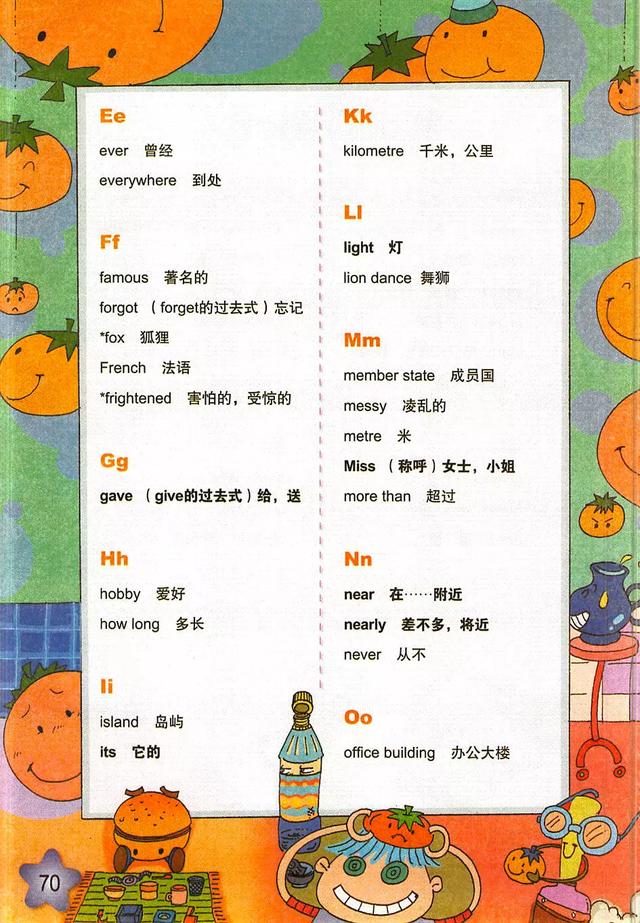 Ee
ever 曾经
everywhere 到处
Ff
famous 著名的
forgot （forget的过去式）忘记
*fox 狐狸
French 法语
*frightened 害怕的，受惊的
Gg
gave （give的过去式）给，送
Hh
hobby 爱好
how long 多长
Ii
island 岛屿
its 它的
Kk
kilometre 千米，公里
Ll
light 灯
lion dance 舞狮
Mm
member state 成员国
messy 凌乱的
metre 米
Miss （称呼）女士，小姐
more than 超过
Nn
near 在……附近
nearly 差不多，将近
never 从不
Oo
office building 办公大楼
70